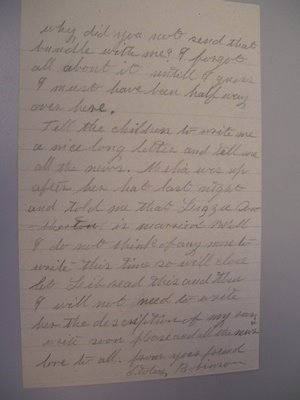 why did you not send that
bundle with me? I forgot
all about it untill I guess
I must have been half way
over here.
Tell the children to write me
a nice long letter and tell me
all the news. Melia was up
after her hat last night
and told me that Lizzie
is married Well
I do not think of any more to
write this time so will close
let read this and then
I will not need to write
her the description of my room
write soon please and all the news
love to all. from your friend